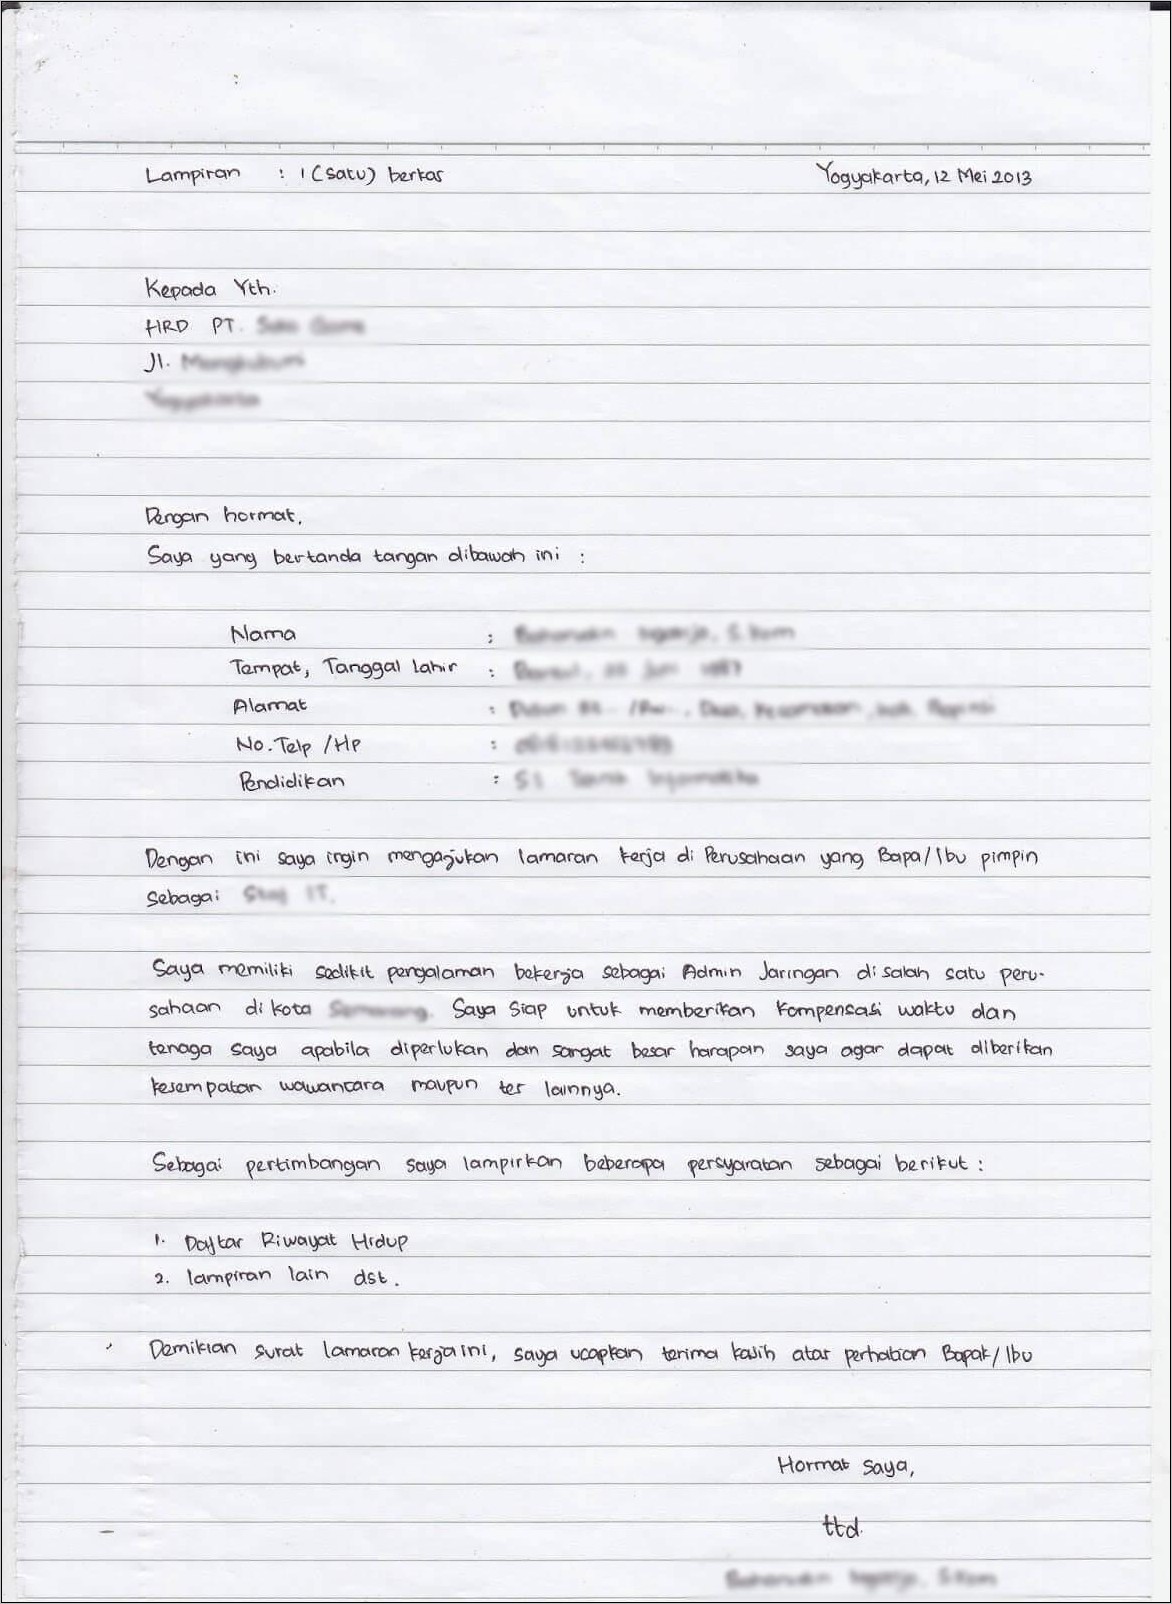 Lampiran : 1 (satu) berkas Yogyakarta, 12 Mei 2013
Kepada Yth.
HRD PT.
Jl.
Dengan hormat,
Saya yang bertanda tangan dibawah ini :
Nama :
Tempat, Tanggal lahir :
Alamat :
No. Telp / Hp :
Pendidikan :
Dengan ini saya ingin mengajukan lamaran kerja di Perusahaan yang Bapa/Ibu pimpin
sebagai
Saya memiliki sedikit pengalaman bekerja sebagai Admin Jaringan disalah satu peru-
sahaan di kota Saya siap untuk memberikan kompensasi waktu dan
tenaga saya apabila diperlukan dan sangat besar harapan saya agar dapat diberikan
kesempatan wawancara maupun tes lainnya.
Sebagai pertimbangan saya lampirkan beberapa persyaratan sebagai berikut :
1. Daftar Riwayat Hidup
2. lampiran lain dst.
Demikian surat lamaran kerja ini, saya ucapkan terima kasih atas perhatian Bapak/Ibu
Hormat saya,
ttd.